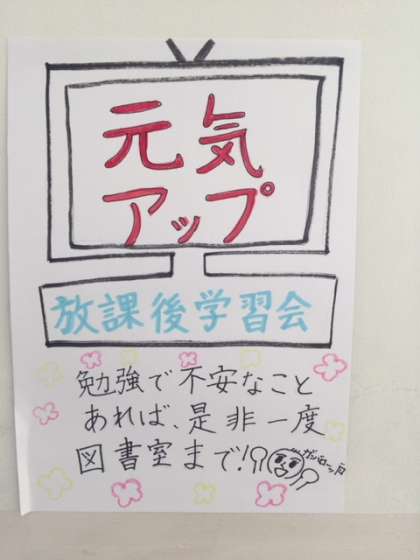 元気
アップ
放課後学習会
勉強で不安なこと
あれば、是非一度
図書室まで!